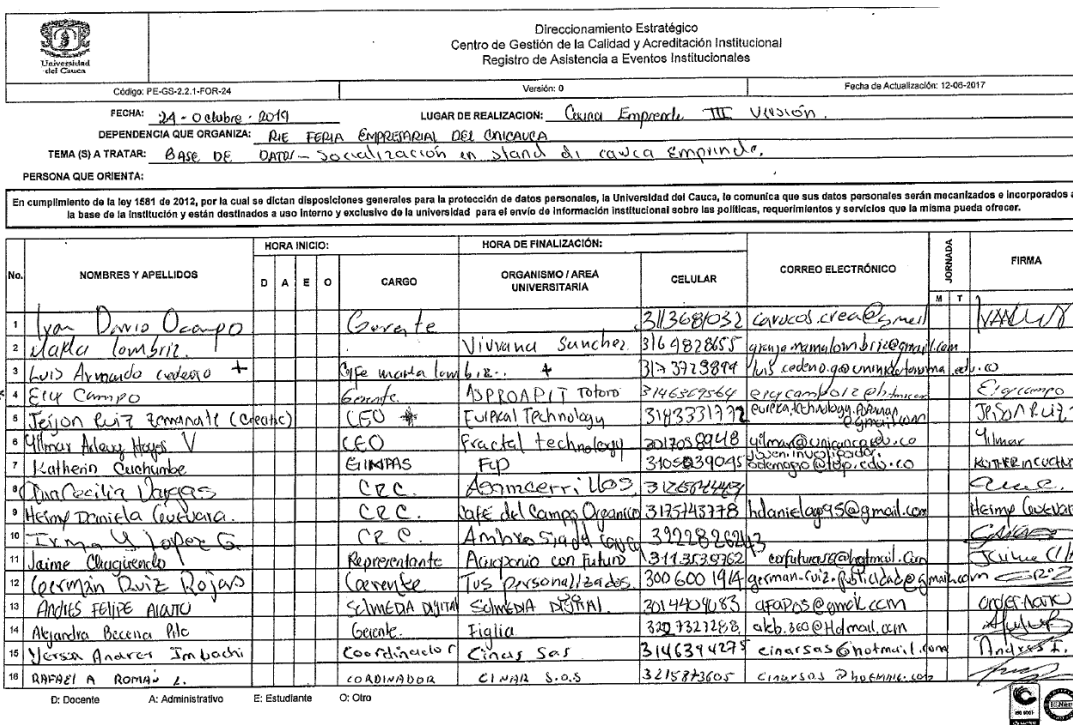 Universidad
del Cauca
Direccionamiento Estratégico
Centro de Gestión de la Calidad y Acreditación Institucional
Registro de Asistencia a Eventos Institucionales
Código: PE-GS-2.2.1-FOR-24 Versión: 0 Fecha de Actualización: 12-06-2017
FECHA: 24 - Octubre - 2019 LUGAR DE REALIZACION: Cauca Emprende III Versión.
DEPENDENCIA QUE ORGANIZA: RIE FERIA EMPRESARIAL DEL UNICAUCA
TEMA (S) A TRATAR: BASE DE DATOS - Socialización en stand di cauca Emprinde.
PERSONA QUE ORIENTA:
En cumplimiento de la ley 1581 de 2012, por la cual se dictan disposiciones generales para la protección de datos personales, la Universidad del Cauca, le comunica que sus datos personales serán mecanizados e incorporados a
la base de la institución y están destinados a uso interno y exclusivo de la universidad para el envío de información institucional sobre las políticas, requerimientos y servicios que la misma pueda ofrecer.
HORA INICIO: HORA DE FINALIZACIÓN:
No. NOMBRES Y APELLIDOS D A E O CARGO ORGANISMO / AREA UNIVERSITARIA CELULAR CORREO ELECTRÓNICO JORNADA M T FIRMA
1 Ivan Dario Ocampo Gerente 3113681032
2 lombriz. Viviana Sanchez 3164828655 granjamamalombriz@gmail.com
3 Luis Armando cedeño + Cafe mama lombriz.. + 3173729899
4 Ely Campo Gerente ASPROAPIT Totoro 3146369564 Elycampo
5 Jeison Ruiz (Creatic) CEO Eureka Technology 3183331772 Jeison Ruiz
6 Yilmar Hoyos V CEO Fractal technology 3017058948 yilmar@unicauca.edu.co Yilmar
7 Katherin Cuchumbe GIMPAS Fup
8 Ana Cecilia Vargas CRC. Asomcerrillos
9 Heimy Daniela Guevara. CRC. Café del Campo Organico 3175743778 hdanielag95@gmail.com Heimy Guevara
10 Irma Y Lopez G. CRC
11 Jaime Chaguendo Representante Acuponio con Futuro 3113539762 Jaime
12 German Ruiz Rojas Gerente Tus personalizados. 300 600 1914 german-ruiz.publicidad@gmail.com
13 ANDRES FELIPE SolMEDIA DIGITAL SolMEDIA DIGITAL. 3014409083
14 Alejandra Becerra Gerente. Figlia 3207327288
15 Yerson Andres Imbachi Coordinador Cinar Sas 3146394275 cinarsas@hotmail.com Andres I.
16 RAFAEL A ROMAN L. CORDINADOR CINAR S.A.S 3215873605 cinarsas@hotmail.com
D: Docente A: Administrativo E: Estudiante O: Otro